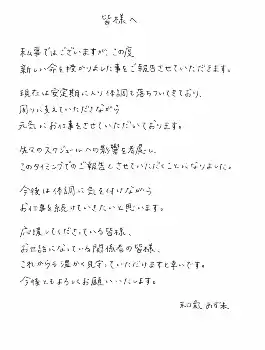 皆様へ
私事ではございますが、この度
新しい命を授かりました事をご報告させていただきます。
現在は安定期に入り体調も落ちついてきており、
周りに支えていただきながら
元気にお仕事をさせていただいております。
仕事のスケジュールへの影響を考慮し、
このタイミングでのご報告とさせていただくことになりました。
今後は体調に気を付けながら
お仕事を続けていきたいと思います。
応援してくださっている皆様、
お世話になっている関係者の皆様、
これからも温かく見守っていただけますと幸いです。
今後ともよろしくお願いいたします。